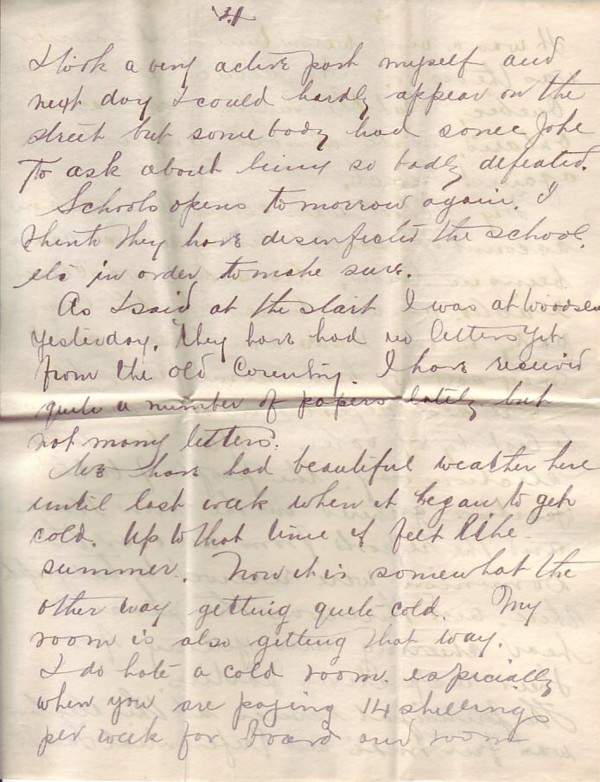 4
I took a very active part myself and
next day I could hardly appear on the
street but somebody had some Joke
To ask about being so badly defeated.
Schools opens tomorrow again. I
think they have desinfected the school
etc in order to make sure.
As I said at the start I was at
yesterday. They have had no letters yet
from the old Country. I have received
quite a number of papers lately but
not many letters.
We have had beautiful weather here
until last week when it began to get
cold. Up to that time it feet like
summer. Now it is somewhat the
other way getting quite cold. My
room is also getting that way.
I do hate a cold room especially
when you are paying 14 shillings
per week for board and room